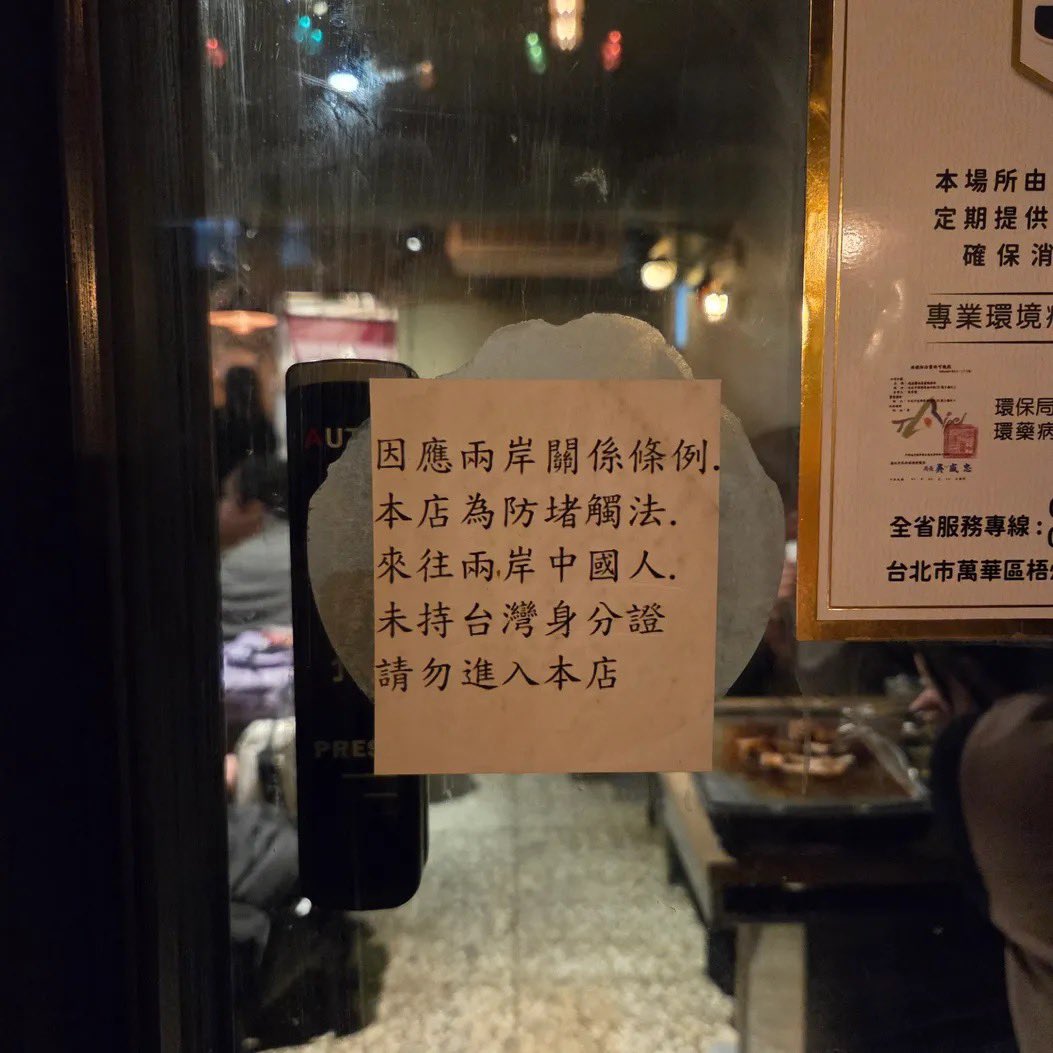 AUT
因應兩岸關係條例.
本店為防堵觸法.
來往兩岸中國人.
未持台灣身分證
請勿進入本店
PRES
本場所由
定期提供
確保消
專業環境
環保局
環藥病
全省服務專線:
台北市萬華區梧